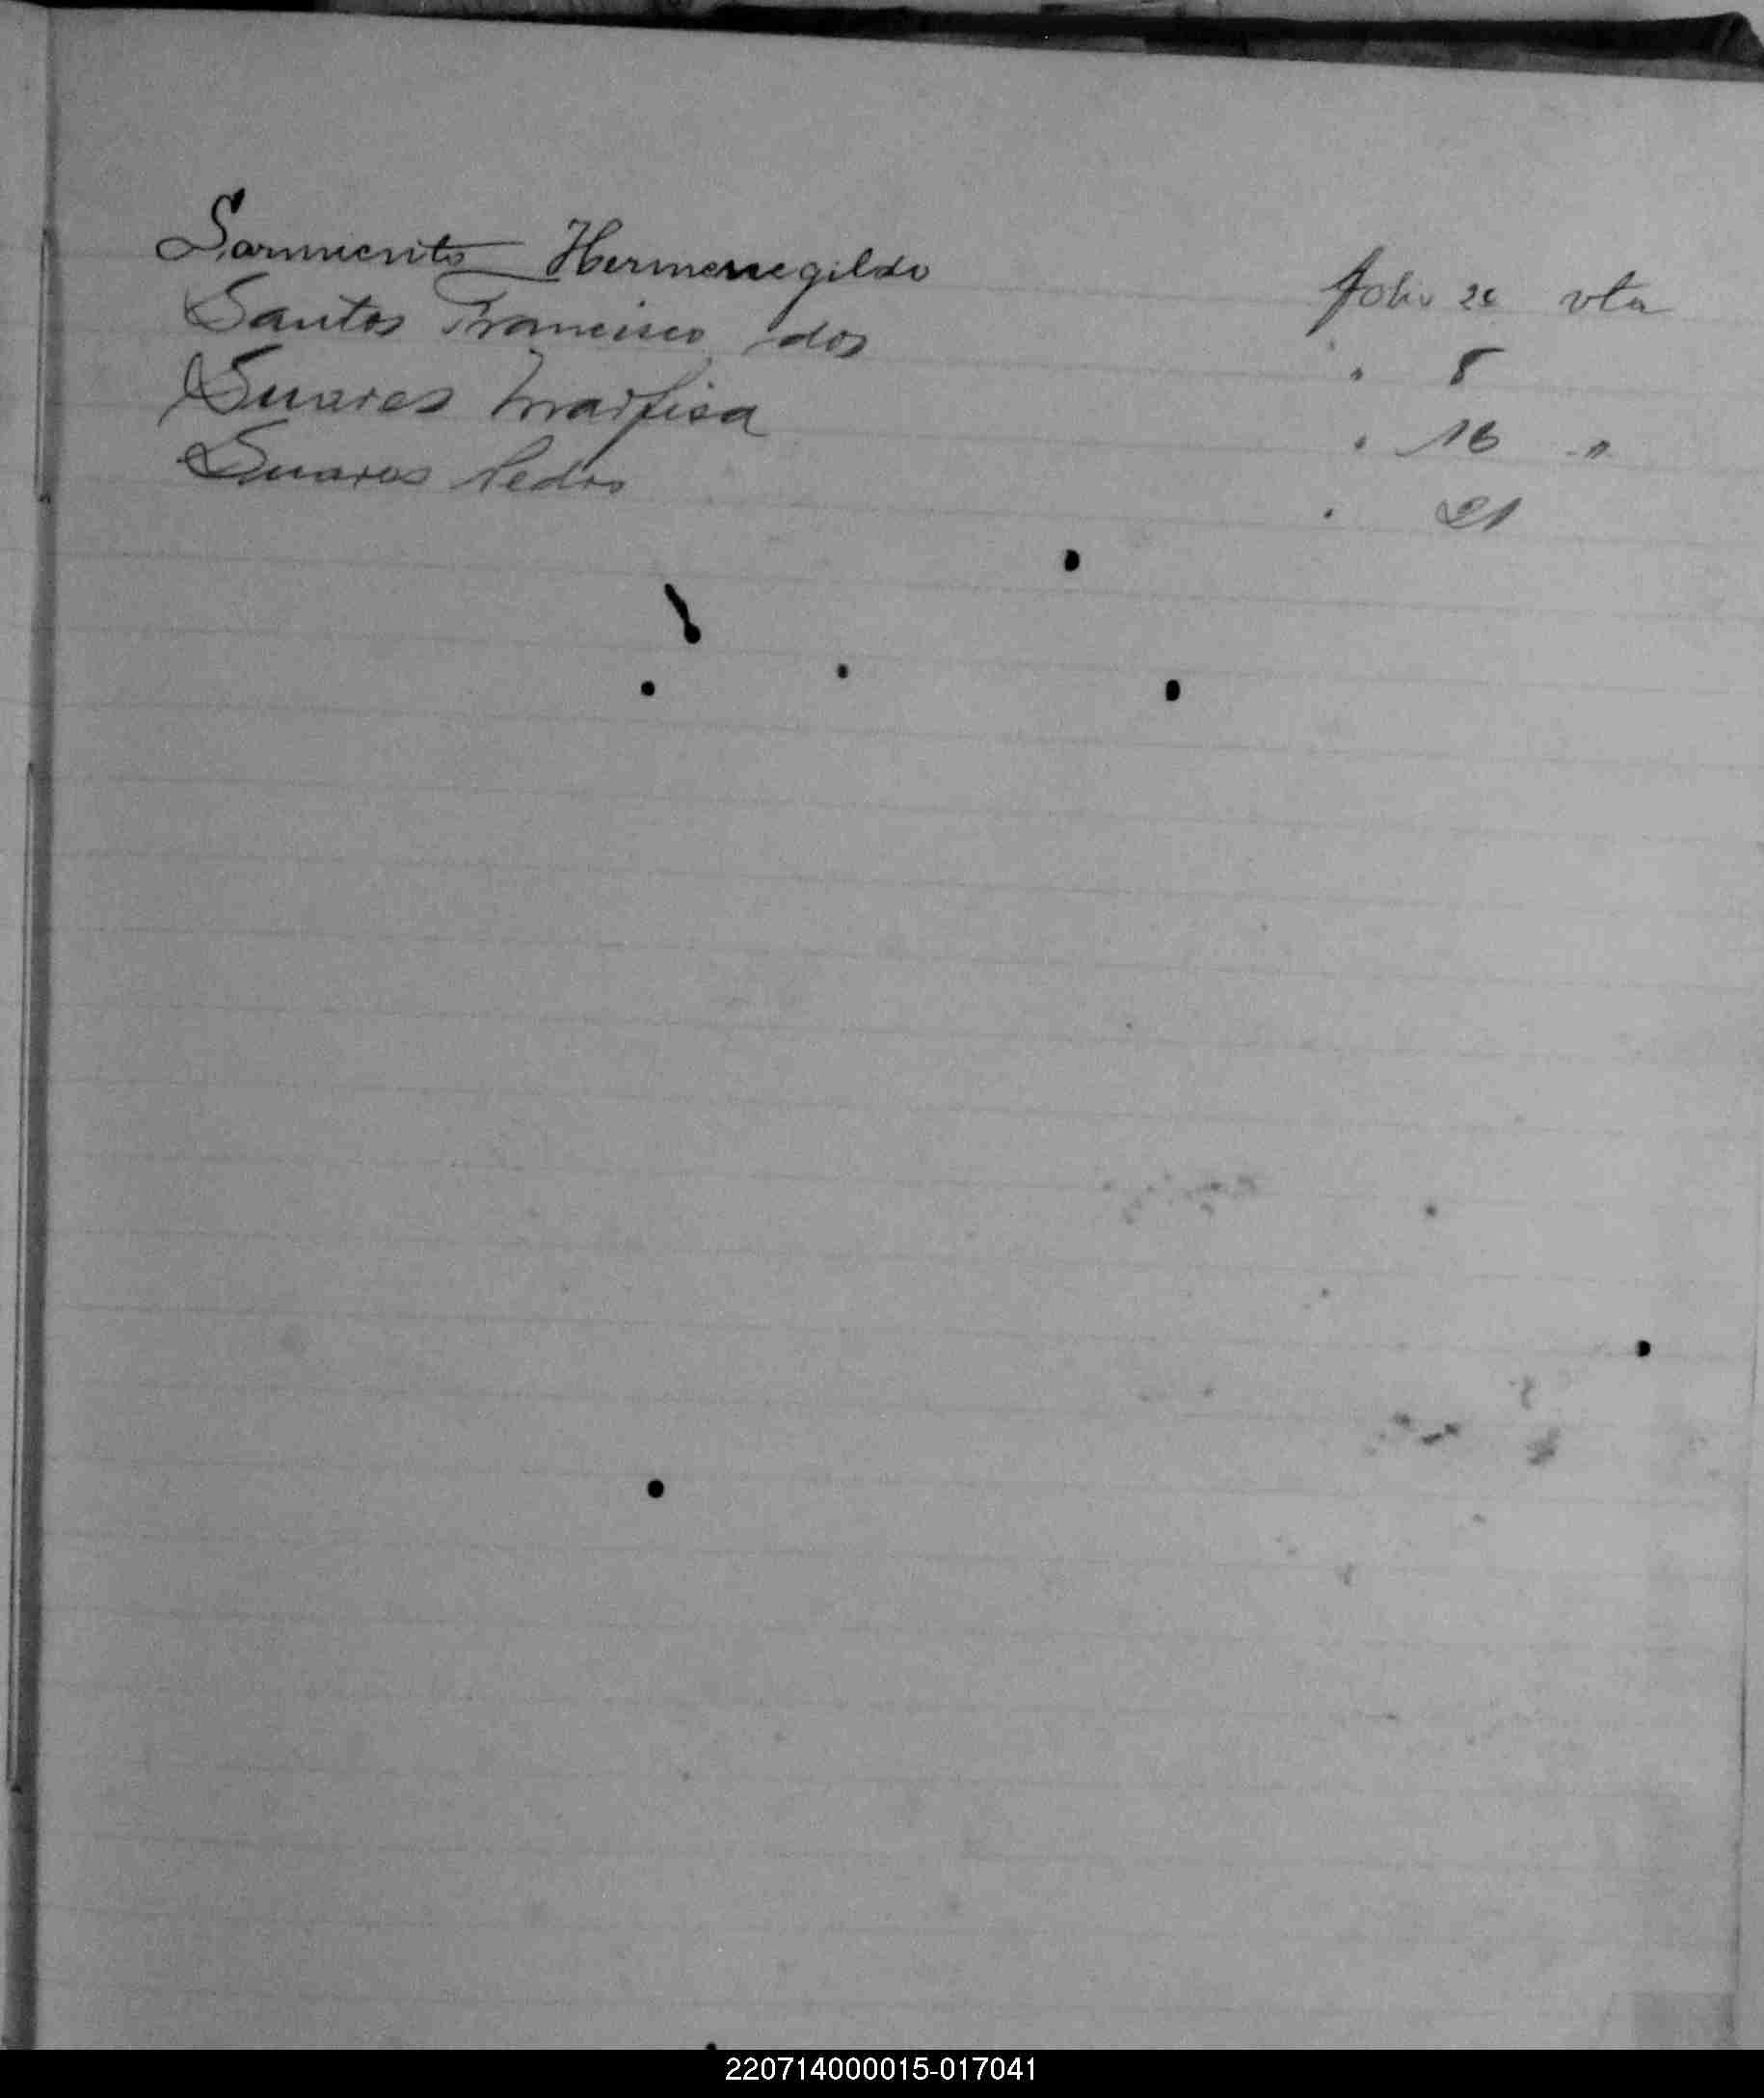 Sarmiento Hermenegildo folio 2 vta
Santos Francisco dos " 8
Suares Marfisa " 16 "
Suares Pedro " 21
220714000015-017041